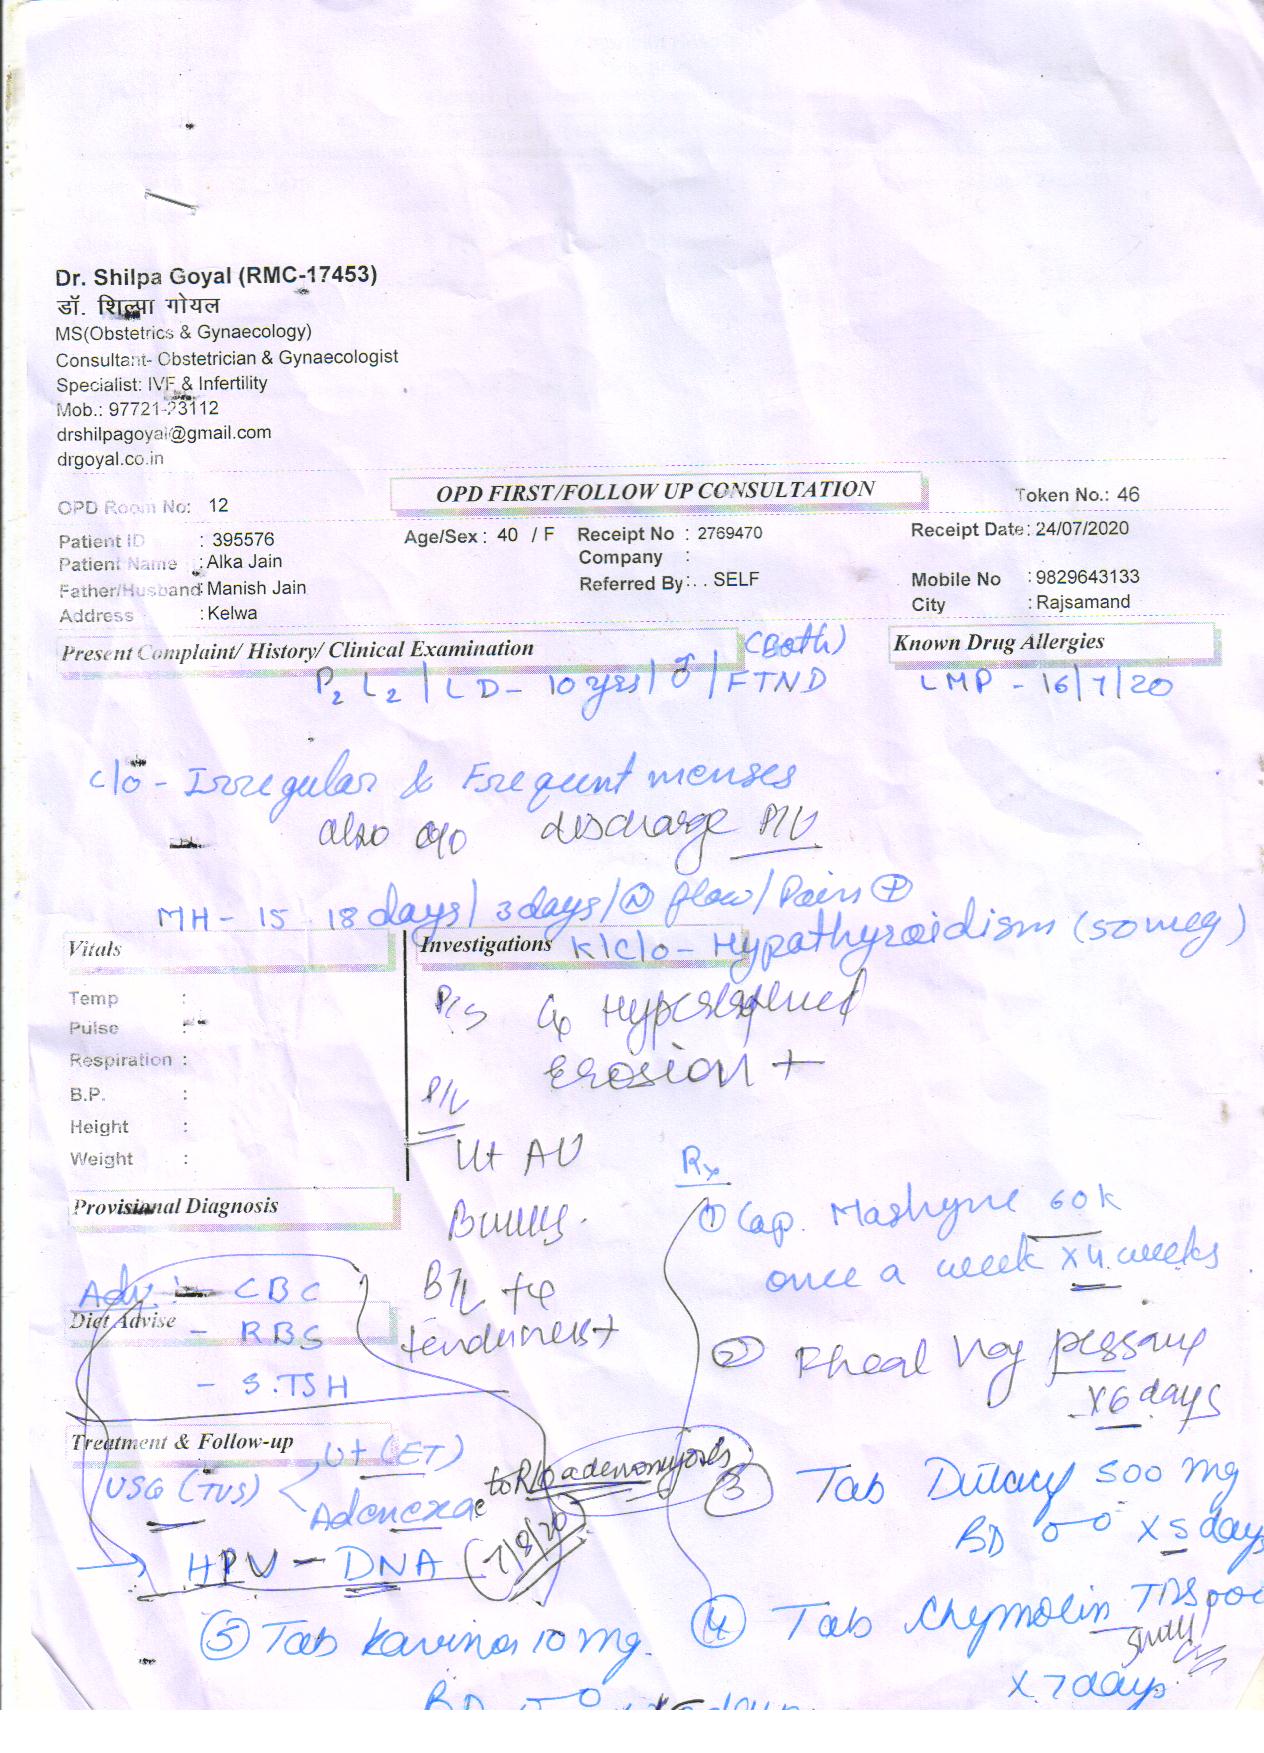 Dr. Shilpa Goyal (RMC-17453)
डॉ. शिल्पा गोयल
MS(Obstetrics & Gynaecology)
Consultant- Obstetrician & Gynaecologist
Specialist: IVF & Infertility
Mob.: 97721-23112
drshilpagoyal@gmail.com
drgoyal.co.in
OPD Room No: 12
OPD FIRST/FOLLOW UP CONSULTATION
Token No.: 46
Patient ID : 395576
Age/Sex : 40 / F
Receipt No : 2769470
Receipt Date : 24/07/2020
Patient Name : Alka Jain
Company :
Father/Husband : Manish Jain
Referred By : . . SELF
Mobile No : 9829643133
Address : Kelwa
City : Rajsamand
Present Complaint/ History/ Clinical Examination
(Both)
Known Drug Allergies
P2 L2 | LD - 10 yrs | ♂ | FTND
LMP - 16/7/20
c/o - Irregular & Frequent menses
also c/o discharge P/V
MH - 15 - 18 days / 3 days / N flow / Pain +
Vitals
Investigations
K/C/o - Hypothyroidism (50 mcg)
Temp :
Pulse :
Respiration :
B.P. :
Height :
Weight :
P/S Cx
Erosion +
P/V
Ut AV
tenderness +
Provisional Diagnosis
Adv :- CBC
Diet Advise
- RBS
- S.TSH
Treatment & Follow-up
USG (TVS)
Ut (ET)
Adenexae
to R/o adenomyosis
HPV - DNA
(7/8/20)
Rx
① Cap. 60k
once a week x 4 weeks
② Vag pessary
x 6 days
③ Tab 500 mg
BD x 5 days
④ Tab Chymolin TDS
x 7 days
⑤ Tab 10 mg.
BD